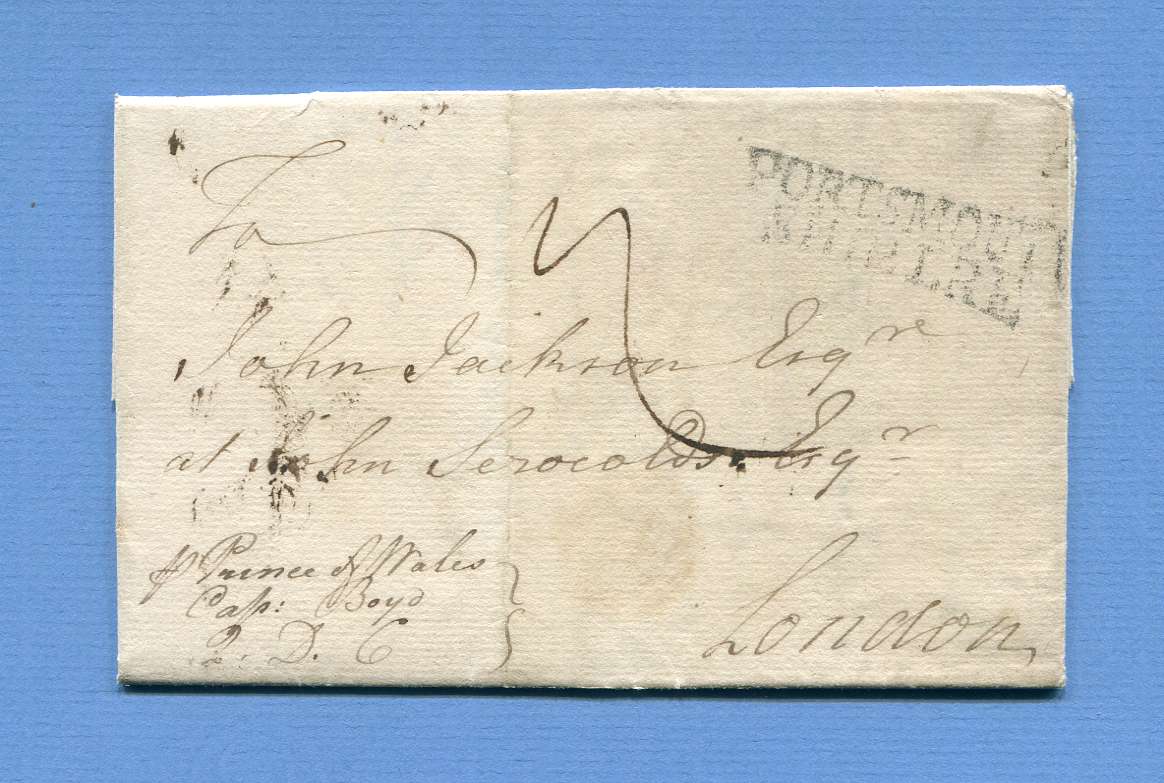 To
PORTSMOUTH
SHIP LRE
John Jackson Esqre
at John Serocolds Esqr
℘ Prince of Wales
Capt: Boyd
Q. D. C
London